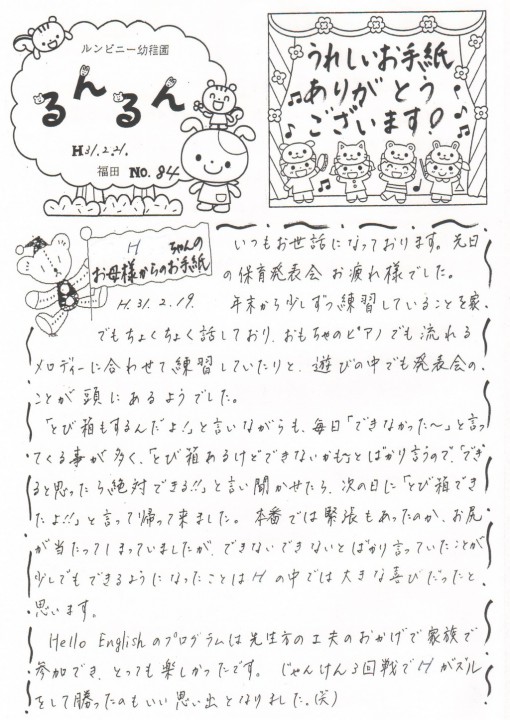 ルンビニー幼稚園
るんるん
H31.2.21.
福田 No.84
うれしいお手紙
ありがとう
ございます!
H ちゃんの
お母様からのお手紙
H.31.2.19.
いつもお世話になっております。先日
の保育発表会 お疲れ様でした。
年末から少しずつ練習していることを家
でもちょくちょく話しており、おもちゃのピアノでも流れる
メロディーに合わせて練習していたりと、遊びの中でも発表会の
ことが頭にあるようでした。
「とび箱もするんだよ!」と言いながらも、毎日「できなかった〜」と言っ
てくる事が多く、「とび箱あるけどできないかも」とばかり言うので、「でき
ると思ったら絶対できる!!」と言い聞かせたら、次の日に「とび箱でき
たよ!!」と言って帰って来ました。本番では緊張もあったのか、お尻
が当たってしまっていましたが、できないできないとばかり言っていたことが
少しでもできるようになったことはHの中では大きな喜びだったと
思います。
Hello Englishのプログラムは先生方の工夫のおかげで家族で
参加でき、とっても楽しかったです。じゃんけん3回戦でHがズル
をして勝ったのもいい思い出となりました。(笑)